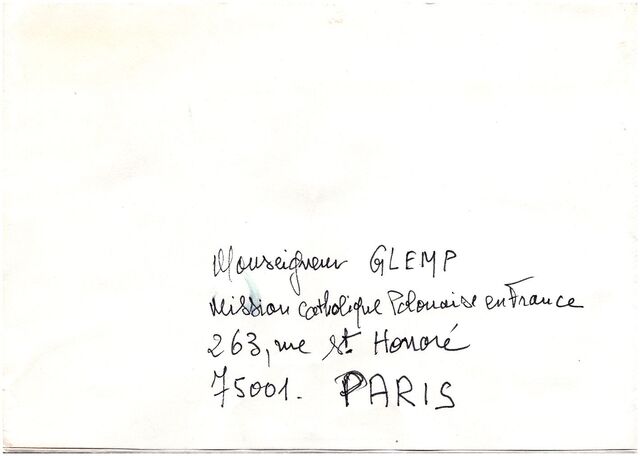 Monseigneur GLEMP
Mission Catholique Polonaise en France
263, rue St Honoré
75001. PARIS